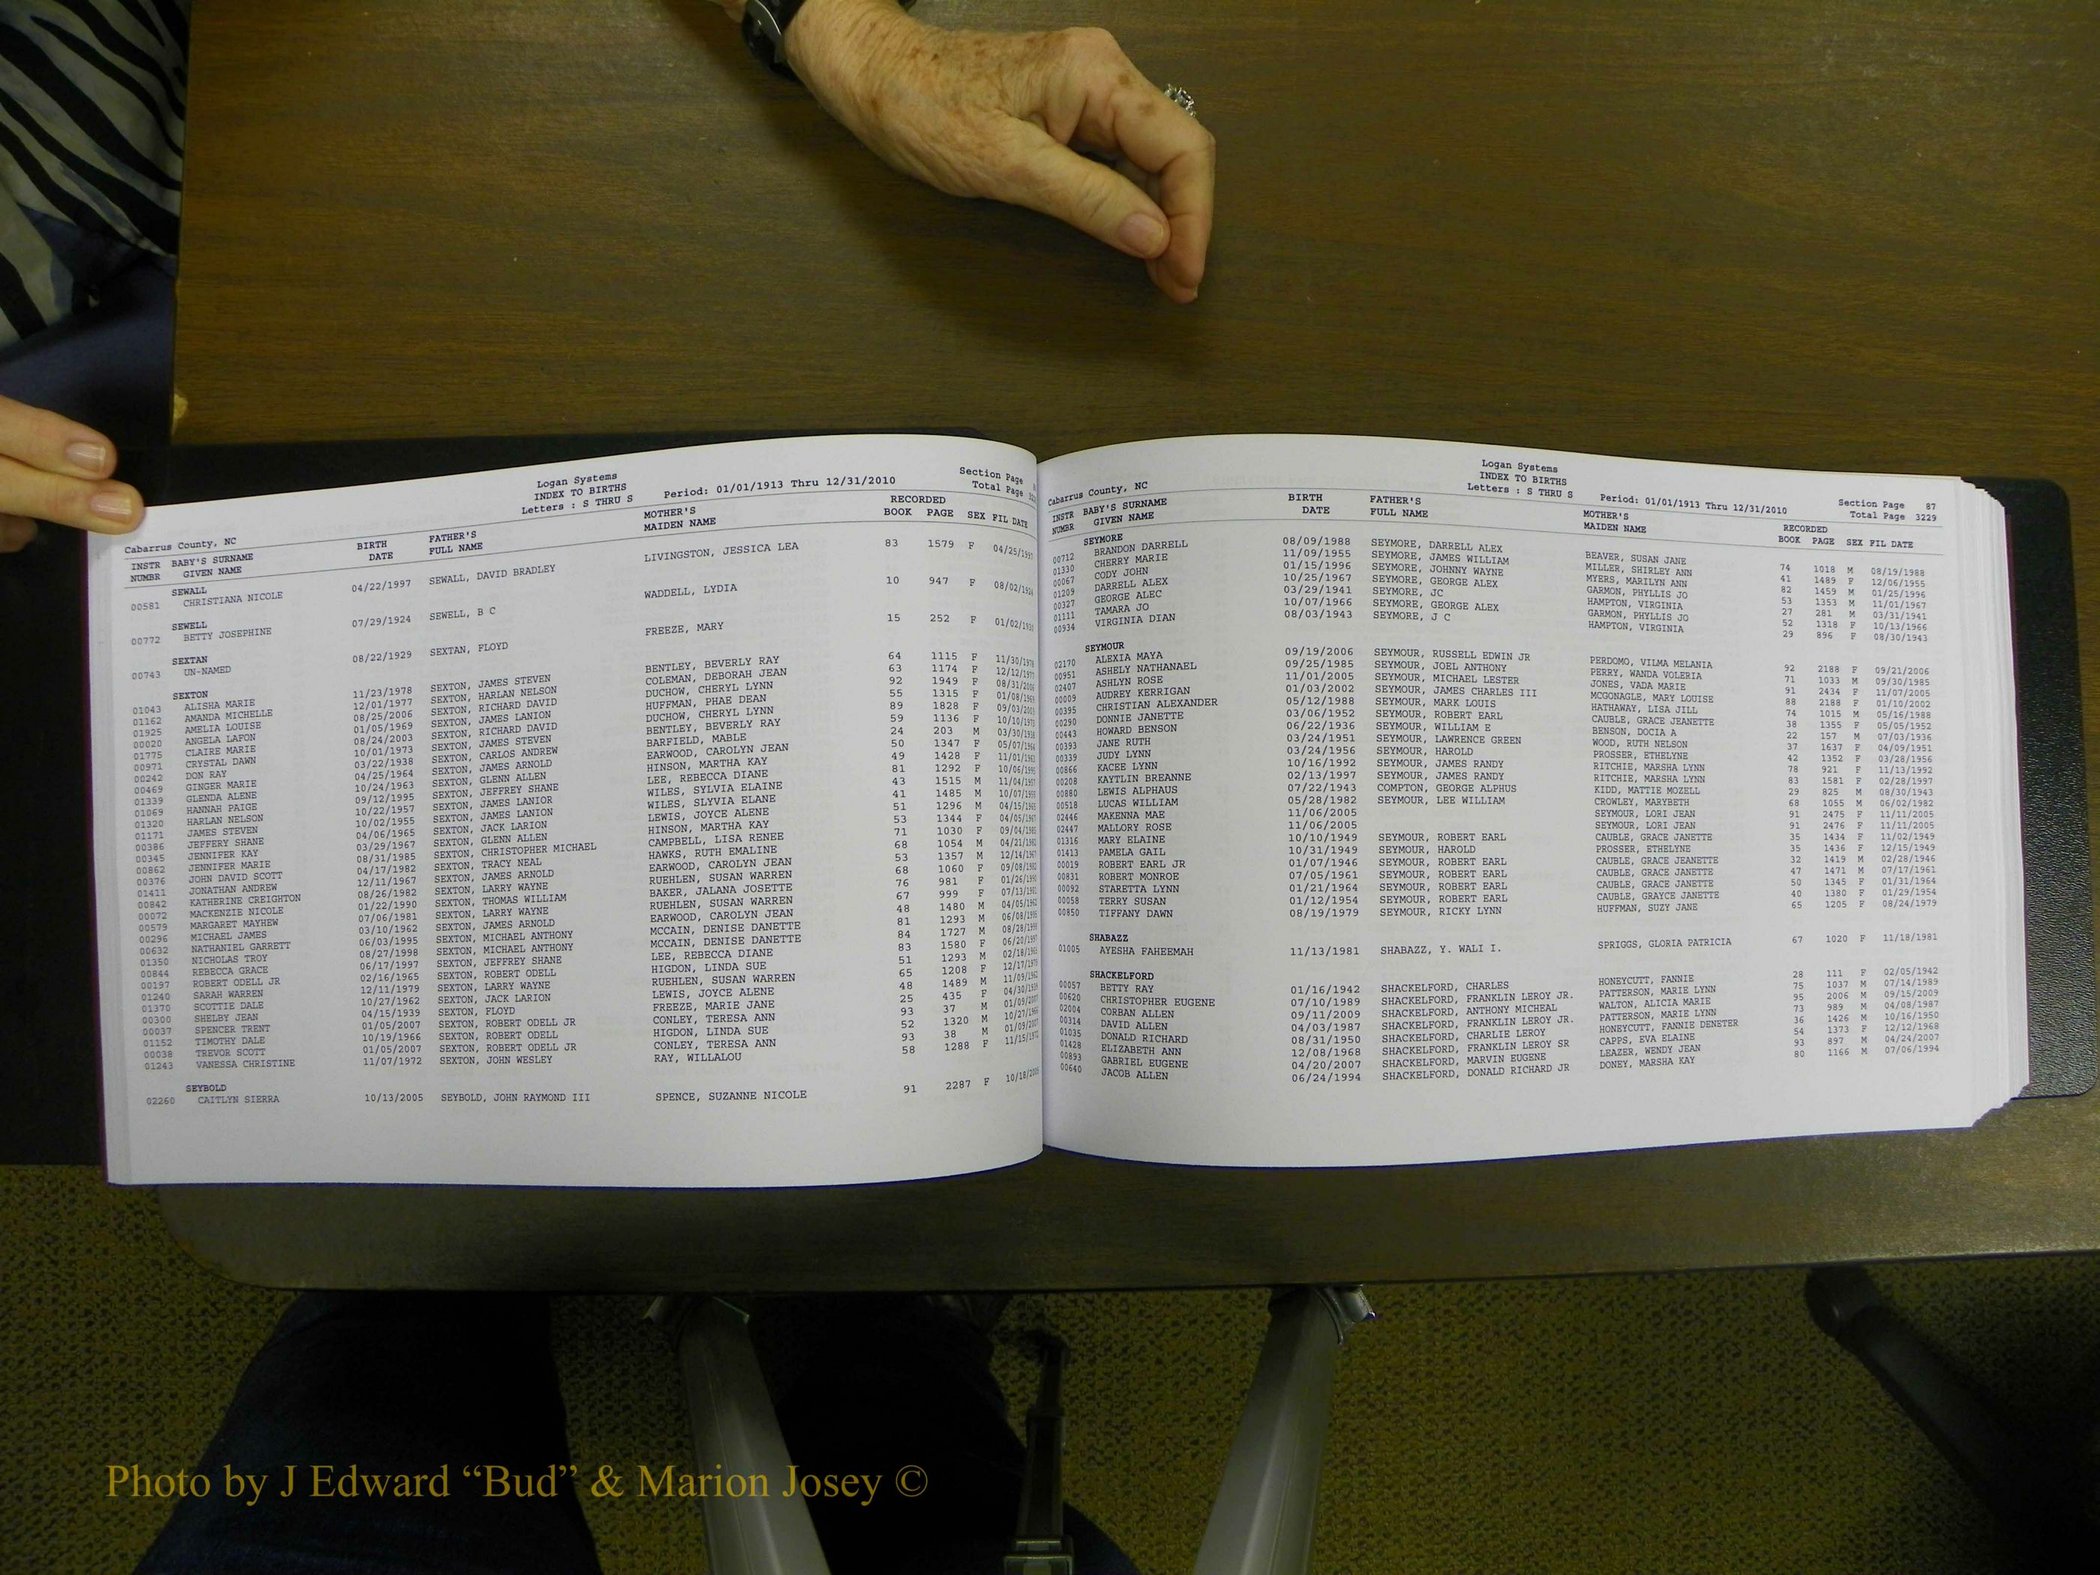 Logan Systems
INDEX TO BIRTHS
Letters : S THRU S
Period: 01/01/1913 Thru 12/31/2010
Section Page
Total Page
Cabarrus County, NC
INSTR BABY'S SURNAME BIRTH FATHER'S MOTHER'S RECORDED
NUMBR GIVEN NAME DATE FULL NAME MAIDEN NAME BOOK PAGE SEX FIL DATE
SEWALL
00581 CHRISTIANA NICOLE 04/22/1997 SEWALL, DAVID BRADLEY LIVINGSTON, JESSICA LEA 83 1579 F 04/25/1997
SEWELL
00772 BETTY JOSEPHINE 07/29/1924 SEWELL, B C WADDELL, LYDIA 10 947 F 08/02/1924
SEXTAN
00743 UN-NAMED 08/22/1929 SEXTAN, FLOYD FREEZE, MARY 15 252 F 01/02/1930
SEXTON
01043 ALISHA MARIE 11/23/1978 SEXTON, JAMES STEVEN BENTLEY, BEVERLY RAY 64 1115 F 11/30/1978
01162 AMANDA MICHELLE 12/01/1977 SEXTON, HARLAN NELSON COLEMAN, DEBORAH JEAN 63 1174 F 12/12/1977
01925 AMELIA LOUISE 08/25/2006 SEXTON, RICHARD DAVID DUCHOW, CHERYL LYNN 92 1949 F 08/31/2006
00020 ANGELA LAFON 01/05/1969 SEXTON, JAMES LANION HUFFMAN, PHAE DEAN 55 1315 F 01/08/1969
01775 CLAIRE MARIE 08/24/2003 SEXTON, RICHARD DAVID DUCHOW, CHERYL LYNN 89 1828 F 09/03/2003
00971 CRYSTAL DAWN 10/01/1973 SEXTON, JAMES STEVEN BENTLEY, BEVERLY RAY 59 1136 F 10/10/1973
00242 DON RAY 03/22/1938 SEXTON, CARLOS ANDREW BARFIELD, MABLE 24 203 M 03/30/1938
00469 GINGER MARIE 04/25/1964 SEXTON, JAMES ARNOLD EARWOOD, CAROLYN JEAN 50 1347 F 05/07/1964
01339 GLENDA ALENE 10/24/1963 SEXTON, GLENN ALLEN HINSON, MARTHA KAY 49 1428 F 11/01/1963
01069 HANNAH PAIGE 09/12/1995 SEXTON, JEFFREY SHANE LEE, REBECCA DIANE 81 1292 F 10/06/1995
01320 HARLAN NELSON 10/22/1957 SEXTON, JAMES LANIOR WILES, SYLVIA ELAINE 43 1515 M 11/04/1957
01171 JAMES STEVEN 10/02/1955 SEXTON, JAMES LANION WILES, SLYVIA ELANE 41 1485 M 10/07/1955
00386 JEFFERY SHANE 04/06/1965 SEXTON, JACK LARION LEWIS, JOYCE ALENE 51 1296 M 04/15/1965
00345 JENNIFER KAY 03/29/1967 SEXTON, GLENN ALLEN HINSON, MARTHA KAY 53 1344 F 04/05/1967
00862 JENNIFER MARIE 08/31/1985 SEXTON, CHRISTOPHER MICHAEL CAMPBELL, LISA RENEE 71 1030 F 09/04/1985
00376 JOHN DAVID SCOTT 04/17/1982 SEXTON, TRACY NEAL HAWKS, RUTH EMALINE 68 1054 M 04/21/1982
01411 JONATHAN ANDREW 12/11/1967 SEXTON, JAMES ARNOLD EARWOOD, CAROLYN JEAN 53 1357 M 12/14/1967
00842 KATHERINE CREIGHTON 08/26/1982 SEXTON, LARRY WAYNE RUEHLEN, SUSAN WARREN 68 1060 F 09/08/1982
00072 MACKENZIE NICOLE 01/22/1990 SEXTON, THOMAS WILLIAM BAKER, JALANA JOSETTE 76 981 F 01/26/1990
00579 MARGARET MAYHEW 07/06/1981 SEXTON, LARRY WAYNE RUEHLEN, SUSAN WARREN 67 999 F 07/13/1981
00296 MICHAEL JAMES 03/10/1962 SEXTON, JAMES ARNOLD EARWOOD, CAROLYN JEAN 48 1480 M 04/05/1962
00632 NATHANIEL GARRETT 06/03/1995 SEXTON, MICHAEL ANTHONY MCCAIN, DENISE DANETTE 81 1293 M 06/08/1995
01350 NICHOLAS TROY 08/27/1998 SEXTON, MICHAEL ANTHONY MCCAIN, DENISE DANETTE 84 1727 M 08/28/1998
00844 REBECCA GRACE 06/17/1997 SEXTON, JEFFREY SHANE LEE, REBECCA DIANE 83 1580 F 06/20/1997
00197 ROBERT ODELL JR 02/16/1965 SEXTON, ROBERT ODELL HIGDON, LINDA SUE 51 1293 M 02/18/1965
01240 SARAH WARREN 12/11/1979 SEXTON, LARRY WAYNE RUEHLEN, SUSAN WARREN 65 1208 F 12/17/1979
01370 SCOTTIE DALE 10/27/1962 SEXTON, JACK LARION LEWIS, JOYCE ALENE 48 1489 M 11/09/1962
00300 SHELBY JEAN 04/15/1939 SEXTON, FLOYD FREEZE, MARIE JANE 25 435 F 04/30/1939
00037 SPENCER TRENT 01/05/2007 SEXTON, ROBERT ODELL JR CONLEY, TERESA ANN 93 37 M 01/09/2007
01152 TIMOTHY DALE 10/19/1966 SEXTON, ROBERT ODELL HIGDON, LINDA SUE 52 1320 M 10/27/1966
00038 TREVOR SCOTT 01/05/2007 SEXTON, ROBERT ODELL JR CONLEY, TERESA ANN 93 38 M 01/09/2007
01243 VANESSA CHRISTINE 11/07/1972 SEXTON, JOHN WESLEY RAY, WILLALOU 58 1288 F 11/15/1972
SEYBOLD
02260 CAITLYN SIERRA 10/13/2005 SEYBOLD, JOHN RAYMOND III SPENCE, SUZANNE NICOLE 91 2287 F 10/18/2005
Logan Systems
INDEX TO BIRTHS
Letters : S THRU S
Period: 01/01/1913 Thru 12/31/2010
Section Page 87
Total Page 3229
Cabarrus County, NC
INSTR BABY'S SURNAME BIRTH FATHER'S MOTHER'S RECORDED
NUMBR GIVEN NAME DATE FULL NAME MAIDEN NAME BOOK PAGE SEX FIL DATE
SEYMORE
00712 BRANDON DARRELL 08/09/1988 SEYMORE, DARRELL ALEX BEAVER, SUSAN JANE 74 1018 M 08/19/1988
01330 CHERRY MARIE 11/09/1955 SEYMORE, JAMES WILLIAM MILLER, SHIRLEY ANN 41 1489 F 12/06/1955
00067 CODY JOHN 01/15/1996 SEYMORE, JOHNNY WAYNE MYERS, MARILYN ANN 82 1459 M 01/25/1996
01209 DARRELL ALEX 10/25/1967 SEYMORE, GEORGE ALEX GARMON, PHYLLIS JO 53 1353 M 11/01/1967
00327 GEORGE ALEC 03/29/1941 SEYMORE, JC HAMPTON, VIRGINIA 27 281 M 03/31/1941
01111 TAMARA JO 10/07/1966 SEYMORE, GEORGE ALEX GARMON, PHYLLIS JO 52 1318 F 10/13/1966
00934 VIRGINIA DIAN 08/03/1943 SEYMORE, J C HAMPTON, VIRGINIA 29 896 F 08/30/1943
SEYMOUR
02170 ALEXIA MAYA 09/19/2006 SEYMOUR, RUSSELL EDWIN JR PERDOMO, VILMA MELANIA 92 2188 F 09/21/2006
00951 ASHELY NATHANAEL 09/25/1985 SEYMOUR, JOEL ANTHONY PERRY, WANDA VOLERIA 71 1033 M 09/30/1985
02407 ASHLYN ROSE 11/01/2005 SEYMOUR, MICHAEL LESTER JONES, VADA MARIE 91 2434 F 11/07/2005
00009 AUDREY KERRIGAN 01/03/2002 SEYMOUR, JAMES CHARLES III MCGONAGLE, MARY LOUISE 88 2188 F 01/10/2002
00395 CHRISTIAN ALEXANDER 05/12/1988 SEYMOUR, MARK LOUIS HATHAWAY, LISA JILL 74 1015 M 05/16/1988
00290 DONNIE JANETTE 03/06/1952 SEYMOUR, ROBERT EARL CAUBLE, GRACE JEANETTE 38 1355 F 05/05/1952
00443 HOWARD BENSON 06/22/1936 SEYMOUR, WILLIAM E BENSON, DOCIA A 22 157 M 07/03/1936
00393 JANE RUTH 03/24/1951 SEYMOUR, LAWRENCE GREEN WOOD, RUTH NELSON 37 1637 F 04/09/1951
00339 JUDY LYNN 03/24/1956 SEYMOUR, HAROLD PROSSER, ETHELYNE 42 1352 F 03/28/1956
00866 KACEE LYNN 10/16/1992 SEYMOUR, JAMES RANDY RITCHIE, MARSHA LYNN 78 921 F 11/13/1992
00208 KAYTLIN BREANNE 02/13/1997 SEYMOUR, JAMES RANDY RITCHIE, MARSHA LYNN 83 1581 F 02/28/1997
00880 LEWIS ALPHAUS 07/22/1943 COMPTON, GEORGE ALPHUS KIDD, MATTIE MOZELL 29 825 M 08/30/1943
00518 LUCAS WILLIAM 05/28/1982 SEYMOUR, LEE WILLIAM CROWLEY, MARYBETH 68 1055 M 06/02/1982
02446 MAKENNA MAE 11/06/2005 SEYMOUR, LORI JEAN 91 2475 F 11/11/2005
02447 MALLORY ROSE 11/06/2005 SEYMOUR, LORI JEAN 91 2476 F 11/11/2005
01316 MARY ELAINE 10/10/1949 SEYMOUR, ROBERT EARL CAUBLE, GRACE JANETTE 35 1434 F 11/02/1949
01413 PAMELA GAIL 10/31/1949 SEYMOUR, HAROLD PROSSER, ETHELYNE 35 1436 F 12/15/1949
00019 ROBERT EARL JR 01/07/1946 SEYMOUR, ROBERT EARL CAUBLE, GRACE JEANETTE 32 1419 M 02/28/1946
00831 ROBERT MONROE 07/05/1961 SEYMOUR, ROBERT EARL CAUBLE, GRACE JANETTE 47 1471 M 07/17/1961
00092 STARETTA LYNN 01/21/1964 SEYMOUR, ROBERT EARL CAUBLE, GRACE JANETTE 50 1345 F 01/31/1964
00058 TERRY SUSAN 01/12/1954 SEYMOUR, ROBERT EARL CAUBLE, GRAYCE JANETTE 40 1380 F 01/29/1954
00850 TIFFANY DAWN 08/19/1979 SEYMOUR, RICKY LYNN HUFFMAN, SUZY JANE 65 1205 F 08/24/1979
SHABAZZ
01005 AYESHA FAHEEMAH 11/13/1981 SHABAZZ, Y. WALI I. SPRIGGS, GLORIA PATRICIA 67 1020 F 11/18/1981
SHACKELFORD
00057 BETTY RAY 01/16/1942 SHACKELFORD, CHARLES HONEYCUTT, FANNIE 28 111 F 02/05/1942
00620 CHRISTOPHER EUGENE 07/10/1989 SHACKELFORD, FRANKLIN LEROY JR. PATTERSON, MARIE LYNN 75 1037 M 07/14/1989
02004 CORBAN ALLEN 09/11/2009 SHACKELFORD, ANTHONY MICHEAL WALTON, ALICIA MARIE 95 2006 M 09/15/2009
00314 DAVID ALLEN 04/03/1987 SHACKELFORD, FRANKLIN LEROY JR. PATTERSON, MARIE LYNN 73 989 M 04/08/1987
01035 DONALD RICHARD 08/31/1950 SHACKELFORD, CHARLIE LEROY HONEYCUTT, FANNIE DENETER 36 1426 M 10/16/1950
01428 ELIZABETH ANN 12/08/1968 SHACKELFORD, FRANKLIN LEROY SR CAPPS, EVA ELAINE 54 1373 F 12/12/1968
00893 GABRIEL EUGENE 04/20/2007 SHACKELFORD, MARVIN EUGENE LEAZER, WENDY JEAN 93 897 M 04/24/2007
00640 JACOB ALLEN 06/24/1994 SHACKELFORD, DONALD RICHARD JR DONEY, MARSHA KAY 80 1166 M 07/06/1994
Photo by J Edward “Bud” & Marion Josey ©